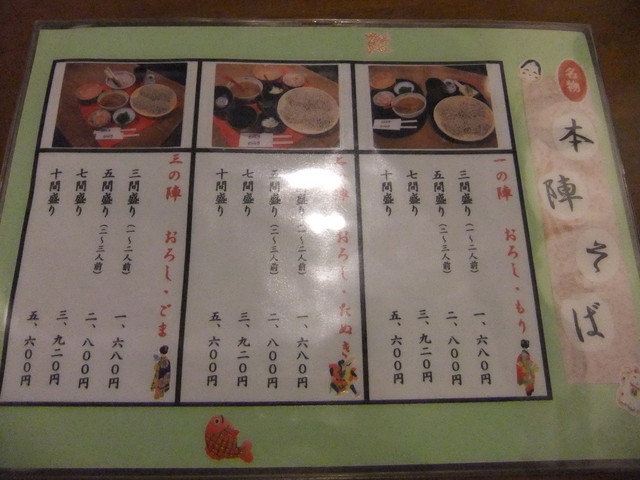 名物
本陣そば
一の陣　おろし・もり
三間盛り（一～二人前）　一、六八〇円
五間盛り（二～三人前）　二、八〇〇円
七間盛り　三、九二〇円
十間盛り　五、六〇〇円
二の陣　おろし・たぬき
三間盛り（一～二人前）　一、六八〇円
五間盛り（二～三人前）　二、八〇〇円
七間盛り　三、九二〇円
十間盛り　五、六〇〇円
三の陣　おろし・ごま
三間盛り（一～二人前）　一、六八〇円
五間盛り（二～三人前）　二、八〇〇円
七間盛り　三、九二〇円
十間盛り　五、六〇〇円